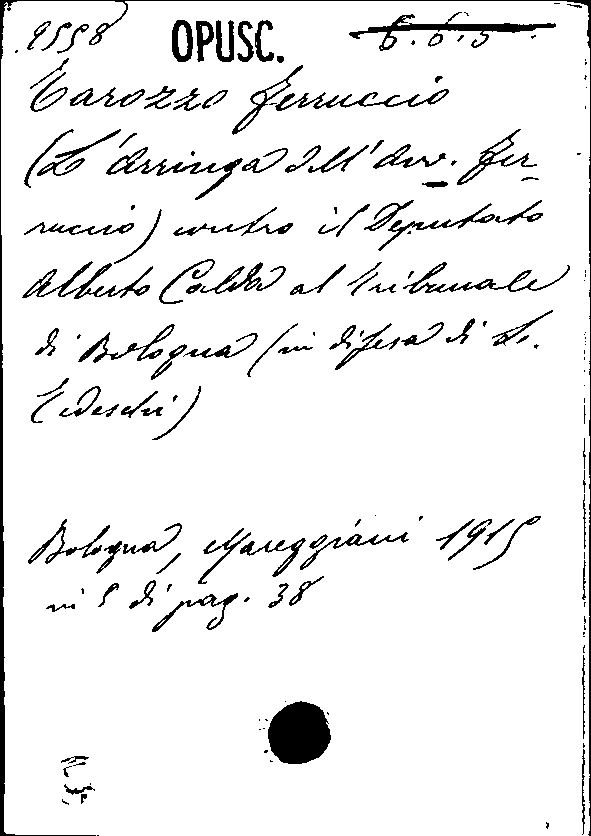 9558 OPUSC. 6.6.5
Tarozzo Ferruccio
(L'Arringa dell'avv. Fer-
ruccio) contro il Deputato
Alberto Calda al Tribunale
di Bologna (in difesa di L.
Tedeschi)
Bologna, Mareggiani 1915
in 8 di pag. 38